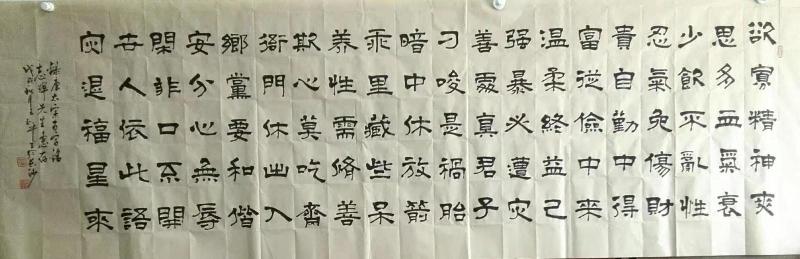 欲寡精神爽
思多血氣衰
少飲不亂性
忍氣免傷財
貴自勤中得
富從儉中來
温柔終益己
强暴必遭灾
善處真君子
刁唆是禍胎
暗中休放箭
乖里藏些呆
養性需脩善
欺心莫吃齋
衙門休出入
鄉黨要和偕
安分心無辱
閑非口不開
世人依此語
灾退福星來
錄唐太宗百字銘
戊戌